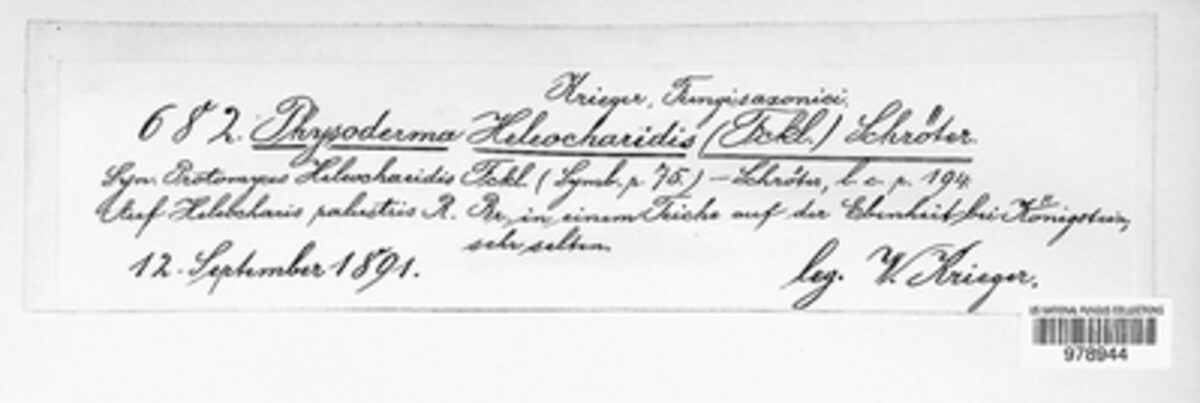 Krieger, Fungi saxonici.
682. Physoderma Heleocharidis (Fckl.) Schröter.
Syn. Protomyces Heleocharidis Fckl. (Symb. p. 75.) — Schröter, l. c. p. 194.
Auf Heleocharis palustris R. Br., in einem Teiche auf der Ebenheit bei Königstein,
sehr selten.
12. September 1891.
leg. W. Krieger.
US NATIONAL FUNGUS COLLECTIONS
978944